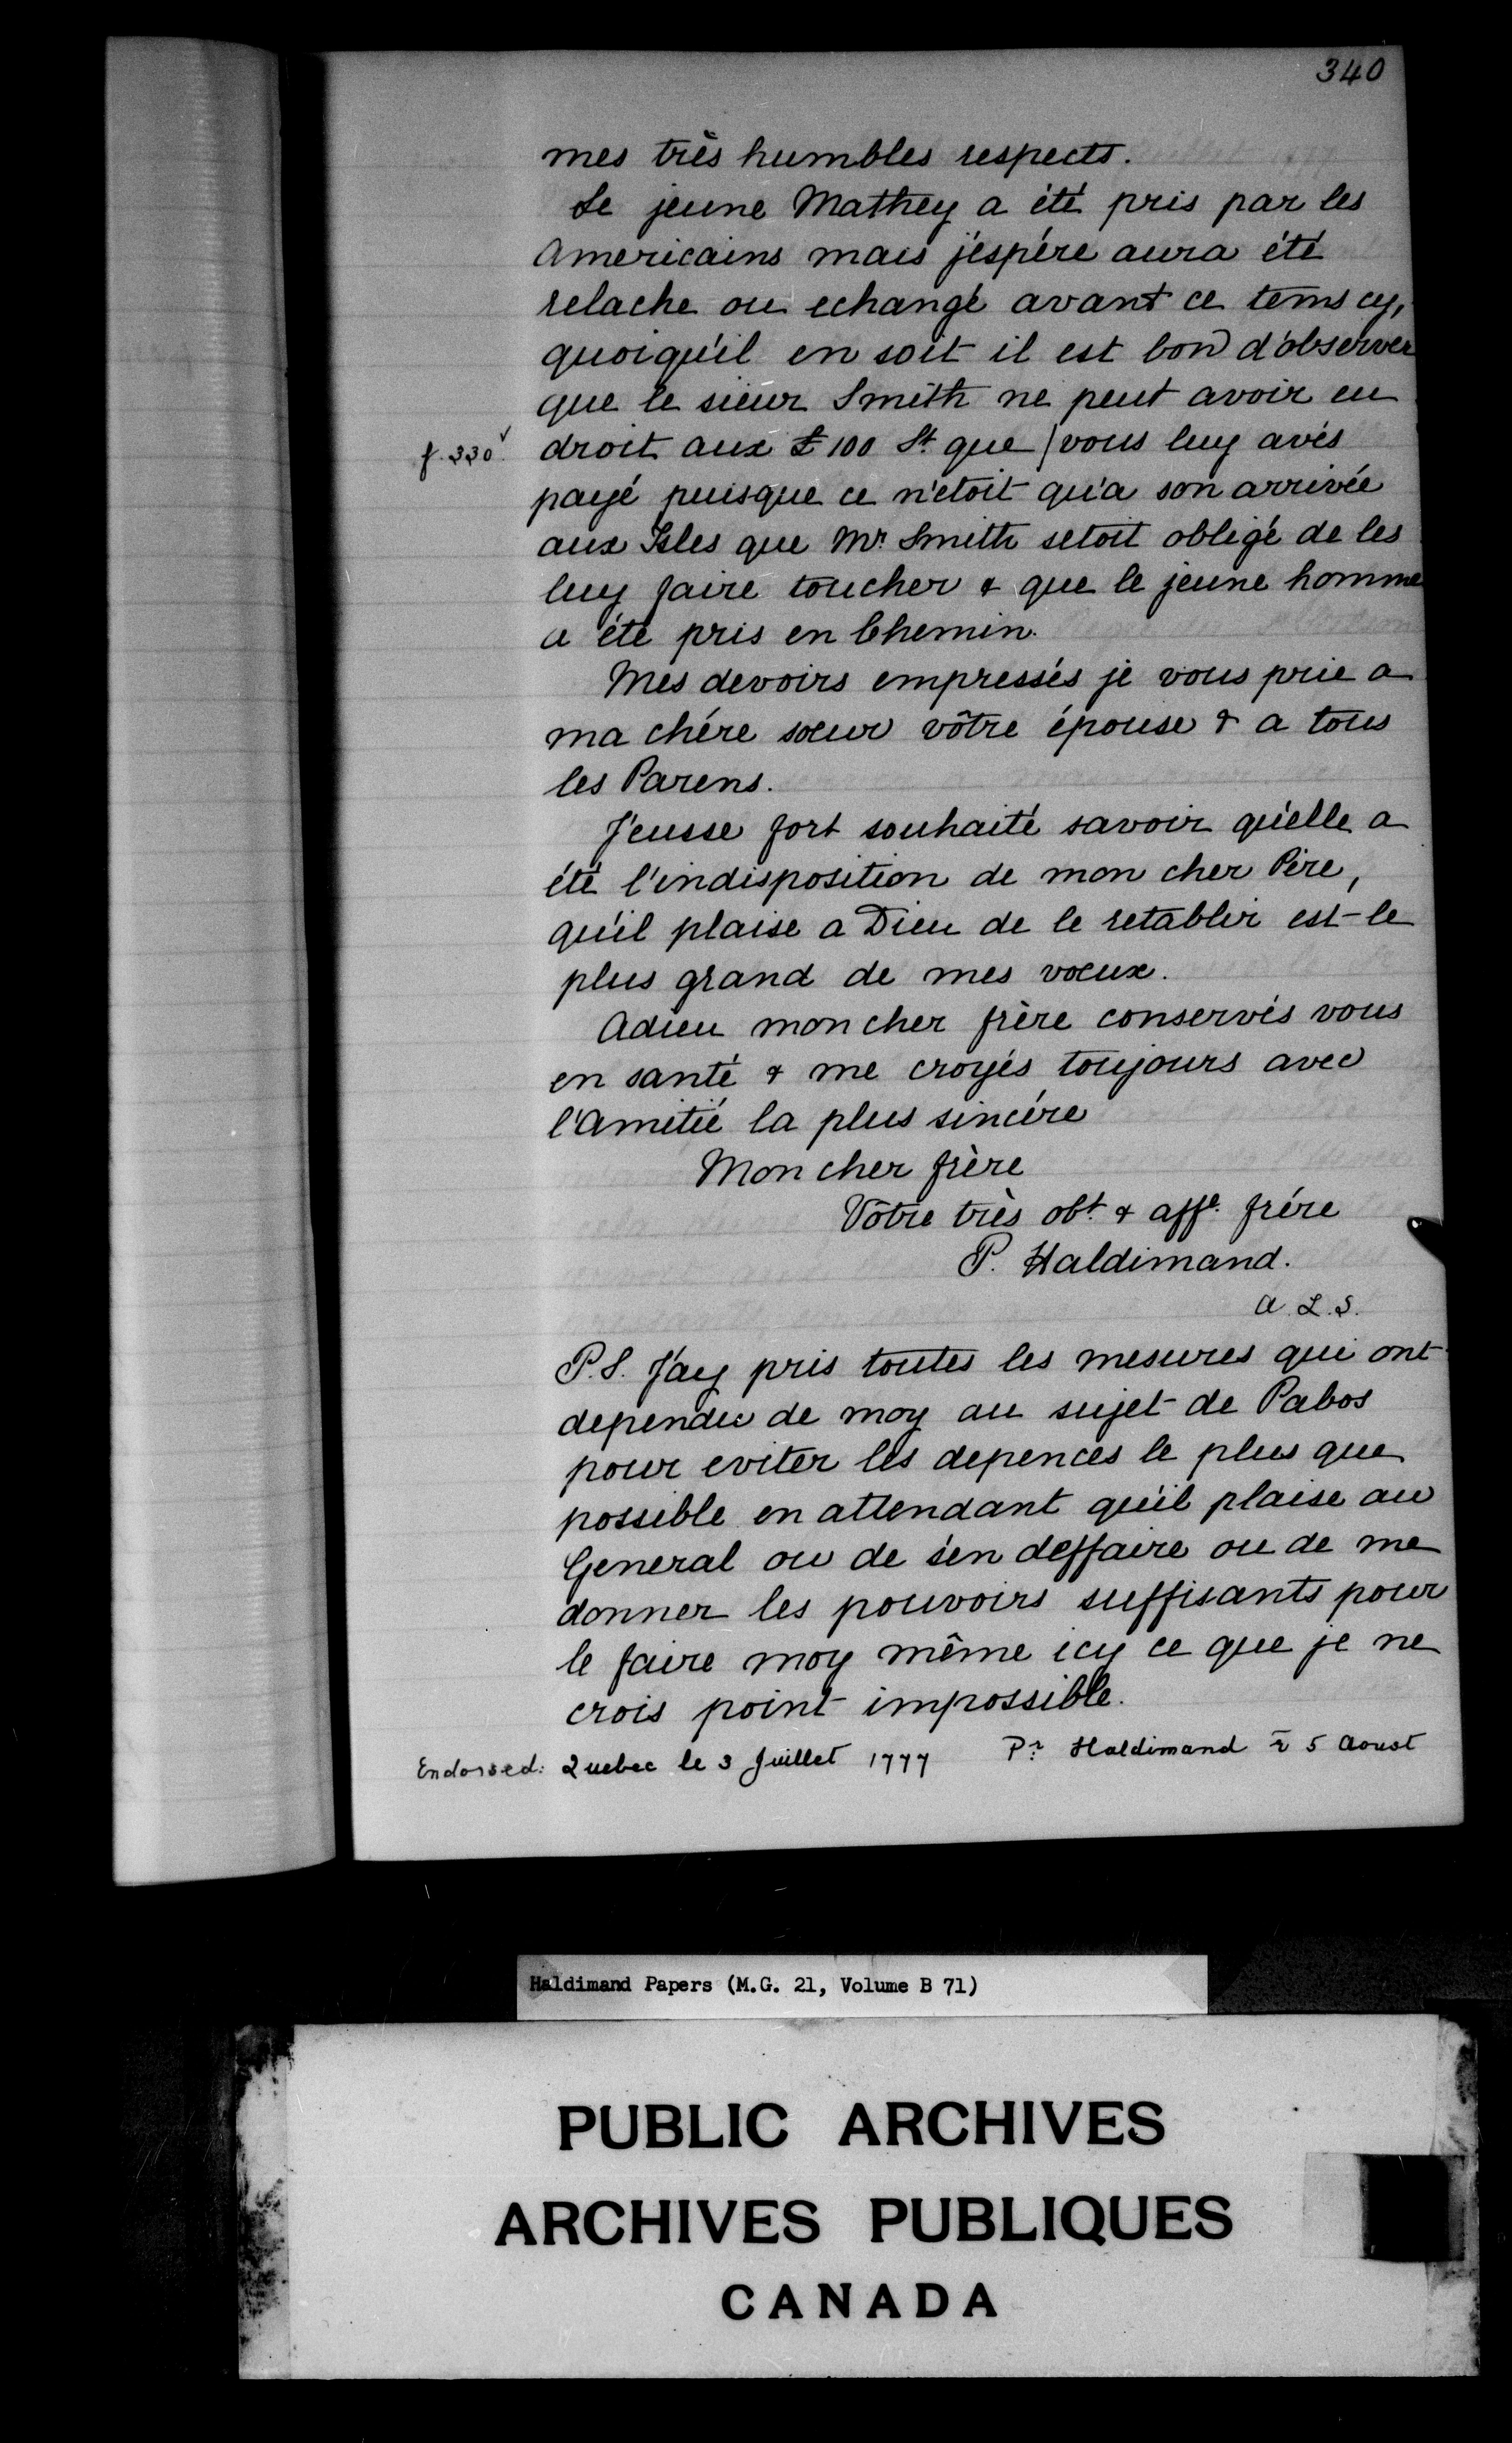 340
mes très humbles respects.
Le jeune Mathey a été pris par les
Americains mais j'espére aura été
relache ou echangé avant ce tems cy,
quoiqu'il en soit il est bon d'observer
que le sieur Smith ne peut avoir eu
f. 330v. droit aux £ 100 St. que / vous luy avés
payé puisque ce n'etoit qu'a son arrivée
aux Isles que Mr. Smith setoit obligé de les
luy faire toucher & que le jeune homme
a été pris en Chemin.
Mes devoirs empressés je vous prie a
ma chére soeur vôtre épouse & a tous
les Parens.
J'eusse fort souhaité savoir qu'elle a
été l'indisposition de mon cher Pére,
qu'il plaise a Dieu de le retablir est-le
plus grand de mes voeux.
Adieu mon cher frère conservés vous
en santé & me croyés toujours avec
l'Amitié la plus sincére
Mon cher frère
Vôtre très obt. & affe. frére
P. Haldimand.
A.L.S.
P.S. J'ay pris toutes les mesures qui ont
dependu de moy au sujet de Pabos
pour eviter les depences le plus que
possible en attendant qu'il plaise au
General ou de s'en deffaire ou de me
donner les pouvoirs suffisants pour
le faire moy même icy ce que je ne
crois point impossible.
Endorsed: Quebec le 3 Juillet 1777 Pr. Haldimand r̄ 5 Aoust
Haldimand Papers (M.G. 21, Volume B 71)
PUBLIC ARCHIVES
ARCHIVES PUBLIQUES
CANADA